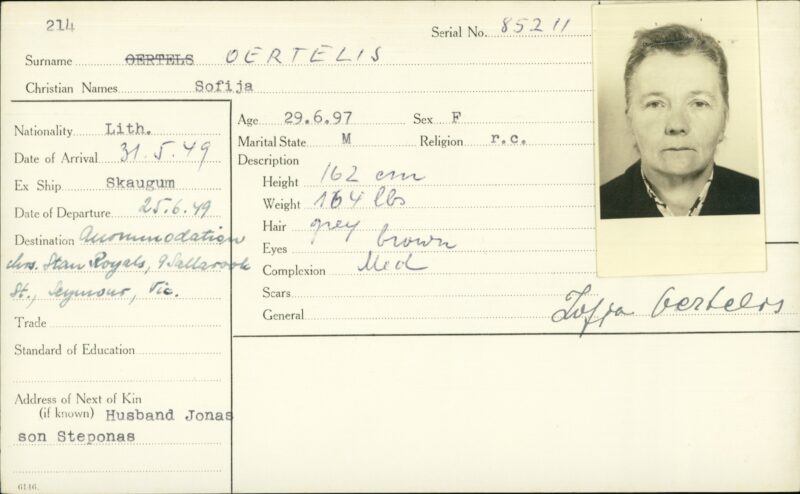 214
Serial No. 85211
Surname OERTELS OERTELIS
Christian Names Sofija
Nationality Lith.
Date of Arrival 31.5.49
Ex Ship Skaugum
Date of Departure 25.6.49
Destination Accommodation
Mrs. Stan Royals, 9
St., Seymour, Vic.
Trade
Standard of Education
Address of Next of Kin
(if known) Husband Jonas
son Steponas
6146.
Age 29.6.97 Sex F
Marital State M Religion r.c.
Description
Height 162 cm
Weight 164 lbs
Hair grey
Eyes brown
Complexion Med
Scars
General
Zofja Oertelis